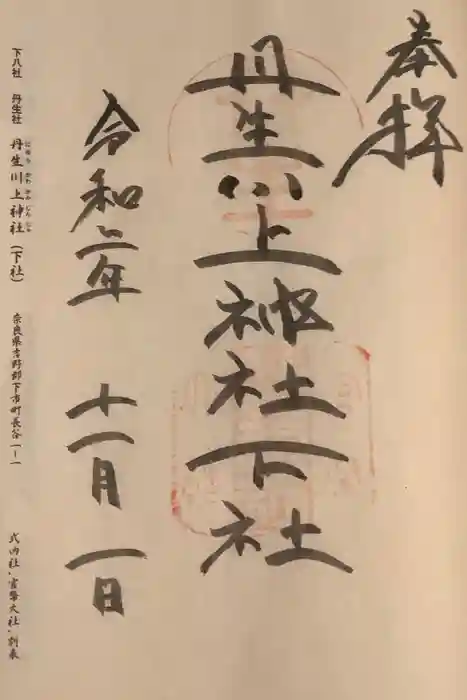 奉拝
丹生川上神社下社
令和二年 十一月一日
下八社 丹生社 丹生川上神社(下社) 奈良県吉野郡下市町長谷一ー一
にゅうかわかみじんじゃ
式内社・官幣大社・別表